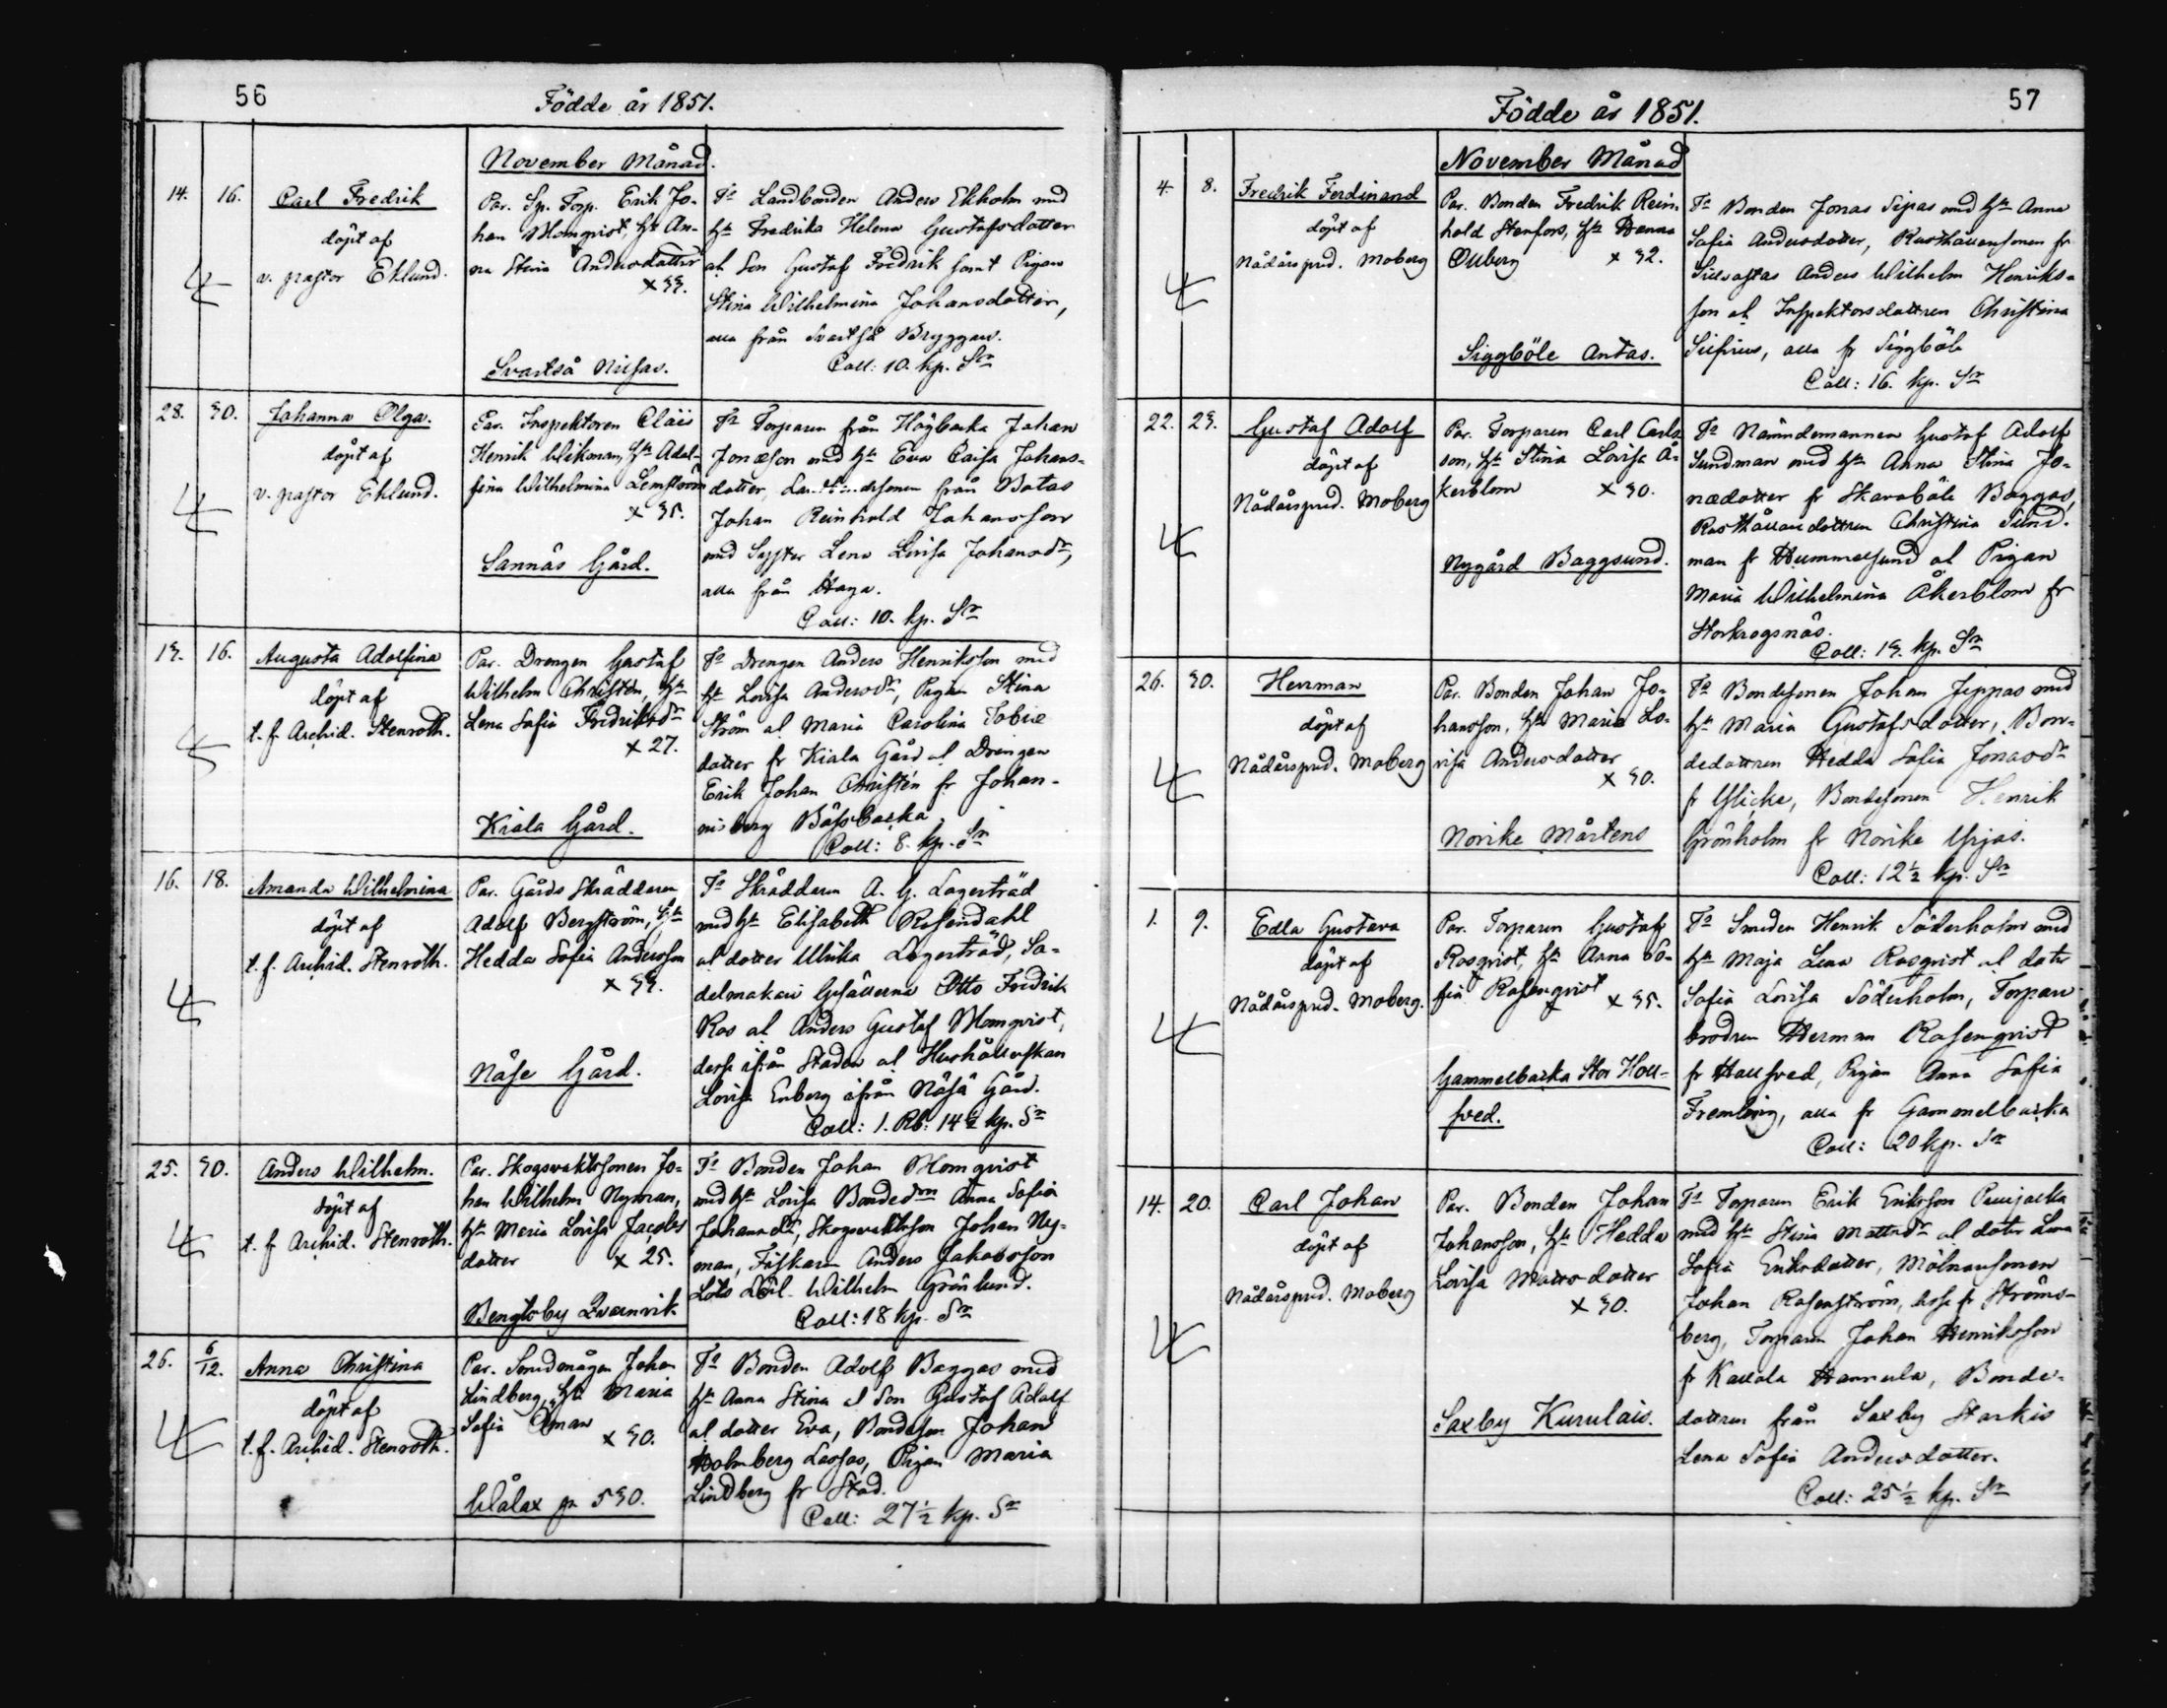 56
Födde år 1851.
November Månad.
14. 16. Carl Fredrik
döpt af
v. pastor Eklund.
Par. Sp. Torp. Erik Jo-
han Blomqvist, Hu An-
na Stina Andersdotter
x 33.
Svartså Nissas.
Fa Landbonden Anders Ekholm med
hu Fredrika Helena Gustafsdotter
al Son Gustaf Fredrik samt Pigan
Stina Wilhelmina Johansdotter,
alla från Svartså Bryggars.
Coll: 10. kp. Sr
28. 30. Johanna Olga.
döpt af
v. pastor Eklund.
Par. Inspektoren Claës
Henrik Wikman, Hu Adol-
fina Wilhelmina Lemström
x 35.
Sannäs Gård.
Fa Torparen från Högbacka Johan
Jonæson med hu Eva Caisa Johans-
dotter, från Botas
Johan Reinhold Johansson
med Syster Lena Lovisa Johansdr,
alla från Haga.
Coll: 10. kp. Sr
13. 16. Augusta Adolfina
döpt af
t. f. Archid. Stenroth.
Par. Drengen Gustaf
Wilhelm Christén, hu
Lena Sofia Fredriksdr
x 27.
Kiala Gård.
Fa Drengen Anders Henriksson med
hu Lovisa Andersdr, Pigan Stina
Ström al Maria Carolina Tobiæ
dotter fr Kiala Gård al Drengen
Erik Johan Christén fr Johan-
nisberg Båssbacka
Coll: 8. kp. Sr
16. 18. Amanda Wilhelmina
döpt af
t. f. Archid. Stenroth.
Par. Gårds Skräddaren
Adolf Bergström, Hu
Hedda Sofia Andersson
x 33.
Näse Gård.
Fa Skräddaren A. G. Lagerträd
med hu Elisabeth Rosendahl
al dotter Ulrika Lagerträd, Sa-
delmakare Gesällerna Otto Fredrik
Ros al Anders Gustaf Blomqvist,
desse ifrån Staden al Hushållerskan
Lovisa Enberg ifrån Näse Gård.
Coll: 1. Rb: 14½ kp. Sr
25. 30. Anders Wilhelm.
döpt af
t. f. Archid. Stenroth.
Par. Skogsvaktssonen Jo-
han Wilhelm Nyman,
hu Maria Lovisa Jacobs
dotter x 25.
Bengtsby Qvarnvik
Fa Bonden Johan Blomqvist
med hu Lovisa Bondedrn Anna Sofia
Johansdr, Skogsvaktsson Johan Ny-
man, Fiskaren Anders Jakobsson
Lots Wilhelm Grönlund.
Coll: 18 kp. Sr
26. 6/12. Anna Christina
döpt af
t. f. Archid. Stenroth.
Par. Smidmågen Johan
Lindberg, Hu Maria
Sofia Öman
x 30.
Wålax pr 530.
Fa Bonden Adolf Baggas med
hu Anna Stina al Son Gustaf Adolf
al dotter Eva, Bondeson Johan
Holmberg Lassas, Pigan Maria
Lindberg fr Stad.
Coll: 27½ kp. Sr
57
Födde år 1851.
November Månad
4. 8. Fredrik Ferdinand
döpt af
Nådårspred. Moberg
Par. Bonden Fredrik Rein-
hold Stenfors, Hu Hanna
Öhberg x 32.
Siggböle Antas.
Fa Bonden Jonas Sipas med hu Anna
Sofia Andersdotter, Rusthållarsonen fr
Anders Wilhelm Henriks-
son al Inspektorsdottren Christina
alla fr Siggböle
Coll: 16. kp. Sr
22. 23. Gustaf Adolf
döpt af
Nådårspred. Moberg
Par. Torparen Carl Carls
son, hu Stina Lovisa Å-
kerblom x 30.
Nygård Baggsund.
Fa Nämndemannen Gustaf Adolf
Sundman med hu Anna Stina Jo-
nædotter fr Skavaböle Baggas,
Rusthållaredottren Christina Sund-
man fr Hummelsund al Pigan
Maria Wilhelmina Åkerblom fr
Storkrogsnäs.
Coll: 13. kp. Sr
26. 30. Herrman
döpt af
Nådårspred. Moberg
Par. Bonden Johan Jo-
hansson, Hu Maria Lo-
visa Andersdotter
x 30.
Norike Mårtens
Fa Bondesonen Johan Jeppas med
hu Maria Gustafsdotter, Bon-
dedottren Hedda Sofia Jonasdr
fr Ylicke, Bondesonen Henrik
Grönholm fr Norike Yrjas.
Coll: 12½ kp. Sr
1. 9. Edla Gustava
döpt af
Nådårspred. Moberg.
Par. Torparen Gustaf
Rosqvist, hu Anna So-
fia Rosenqvist x 35.
Gammelbacka Stor Holl-
sved.
Fa Smeden Henrik Söderholm med
hu Maja Lena Rosqvist al dotter
Sofia Lovisa Söderholm, Torpare
brodren Herman Rosenqvist
fr Hallsved, Pigan Anna Sofia
Fremling, alla fr Gammelbacka
Coll: 20 kp. Sr
14. 20. Carl Johan
döpt af
Nådårspred. Moberg
Par. Bonden Johan
Johansson, hu Hedda
Lovisa Mattsdotter
x 30.
Saxby Kurulais.
Fa Torparen Erik Eriksson
med hu Stina Mattsdr al dotter Lena
Sofia Eriksdotter, Mölnarsonen
Johan Rosenström, desse fr Ströms-
berg, Torparen Johan Henriksson
fr Kallola Hannula, Bonde-
dottren från Saxby Starkis
Lena Sofia Andersdotter.
Coll: 25½ kp. Sr